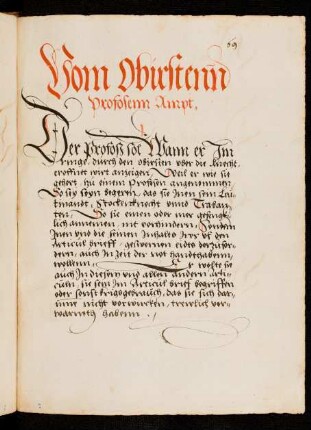 59
Vom Obirstenn
Profosenn Ampt.
Der Profoss sol Wann er Im
ringe, durch den obirsten vber die knecht
eroffnet wirt anzeigen, Weil er wie sie
gehort zu einem Profosen angenommen
So sey sein begeren, das sie Inen sein Leut-
mandt, Stockerknecht vnnd Traban-
ten, So sie einen oder mer gefengk-
lich annemen, nit verhindern, Sondern
Inen vnd die seinen Inhalts Irer vf den
Articuls brieff, geschwornen eidts darzufor-
dern, auch In Zeit der not handthabenn,
wollenn, Er wolte sie
auch In diesem vnd allen andern Arti-
culn, sie sein Im Articuls brief begriffen
oder sonst krigsgebrauch, das sie sich dar-
Inne nicht vorwurcken, treulich vor-
warneth habenn.